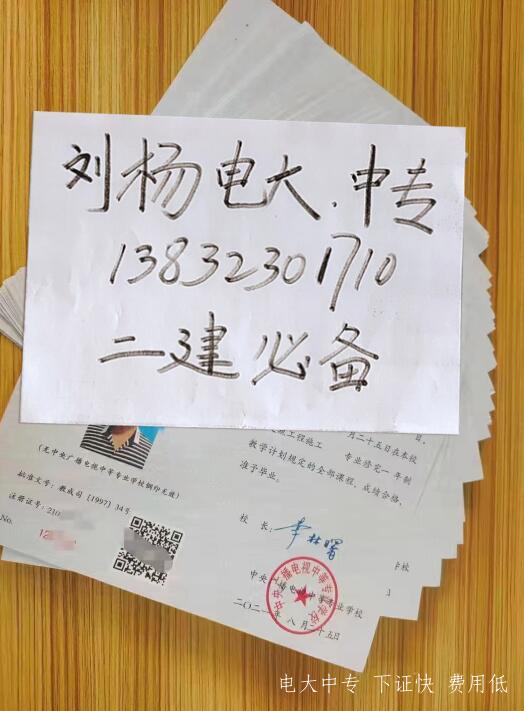 刘杨电大.中专
13832301710
二建必备
(无中央广播电视中等专业学校钢印无效)
批准文号:教成司【1997】34号
注册证号:210
No.
12
月二十五日在本校
工程施工
专业修完一年制
教学计划规定的全部课程,成绩合格,
准予毕业。
校 长:
李林曙
中央广播电视中等专业学校
二〇二一年八月二十五日
电大中专 下证快 费用低